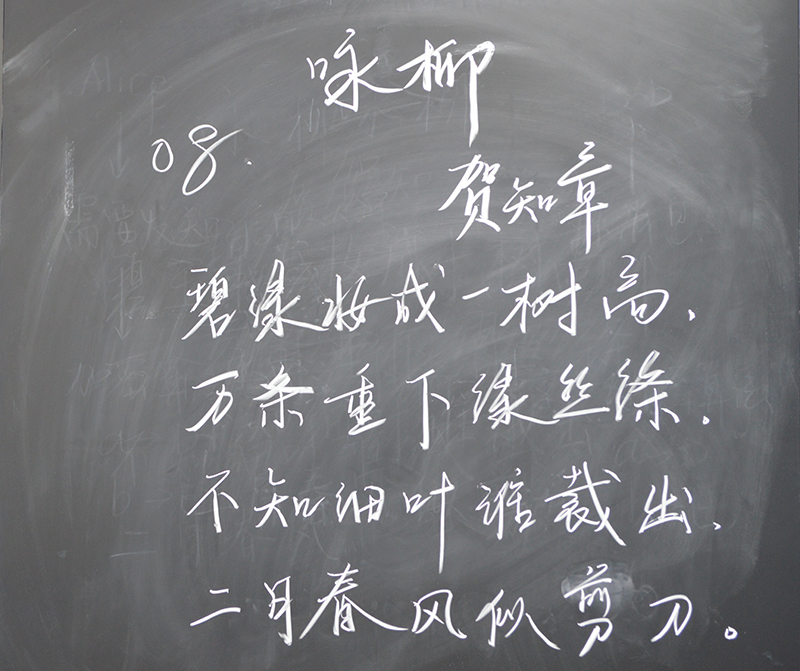 咏柳
08.
贺知章
碧绿妆成一树高,
万条重下绿丝绦.
不知细叶谁裁出,
二月春风似剪刀。